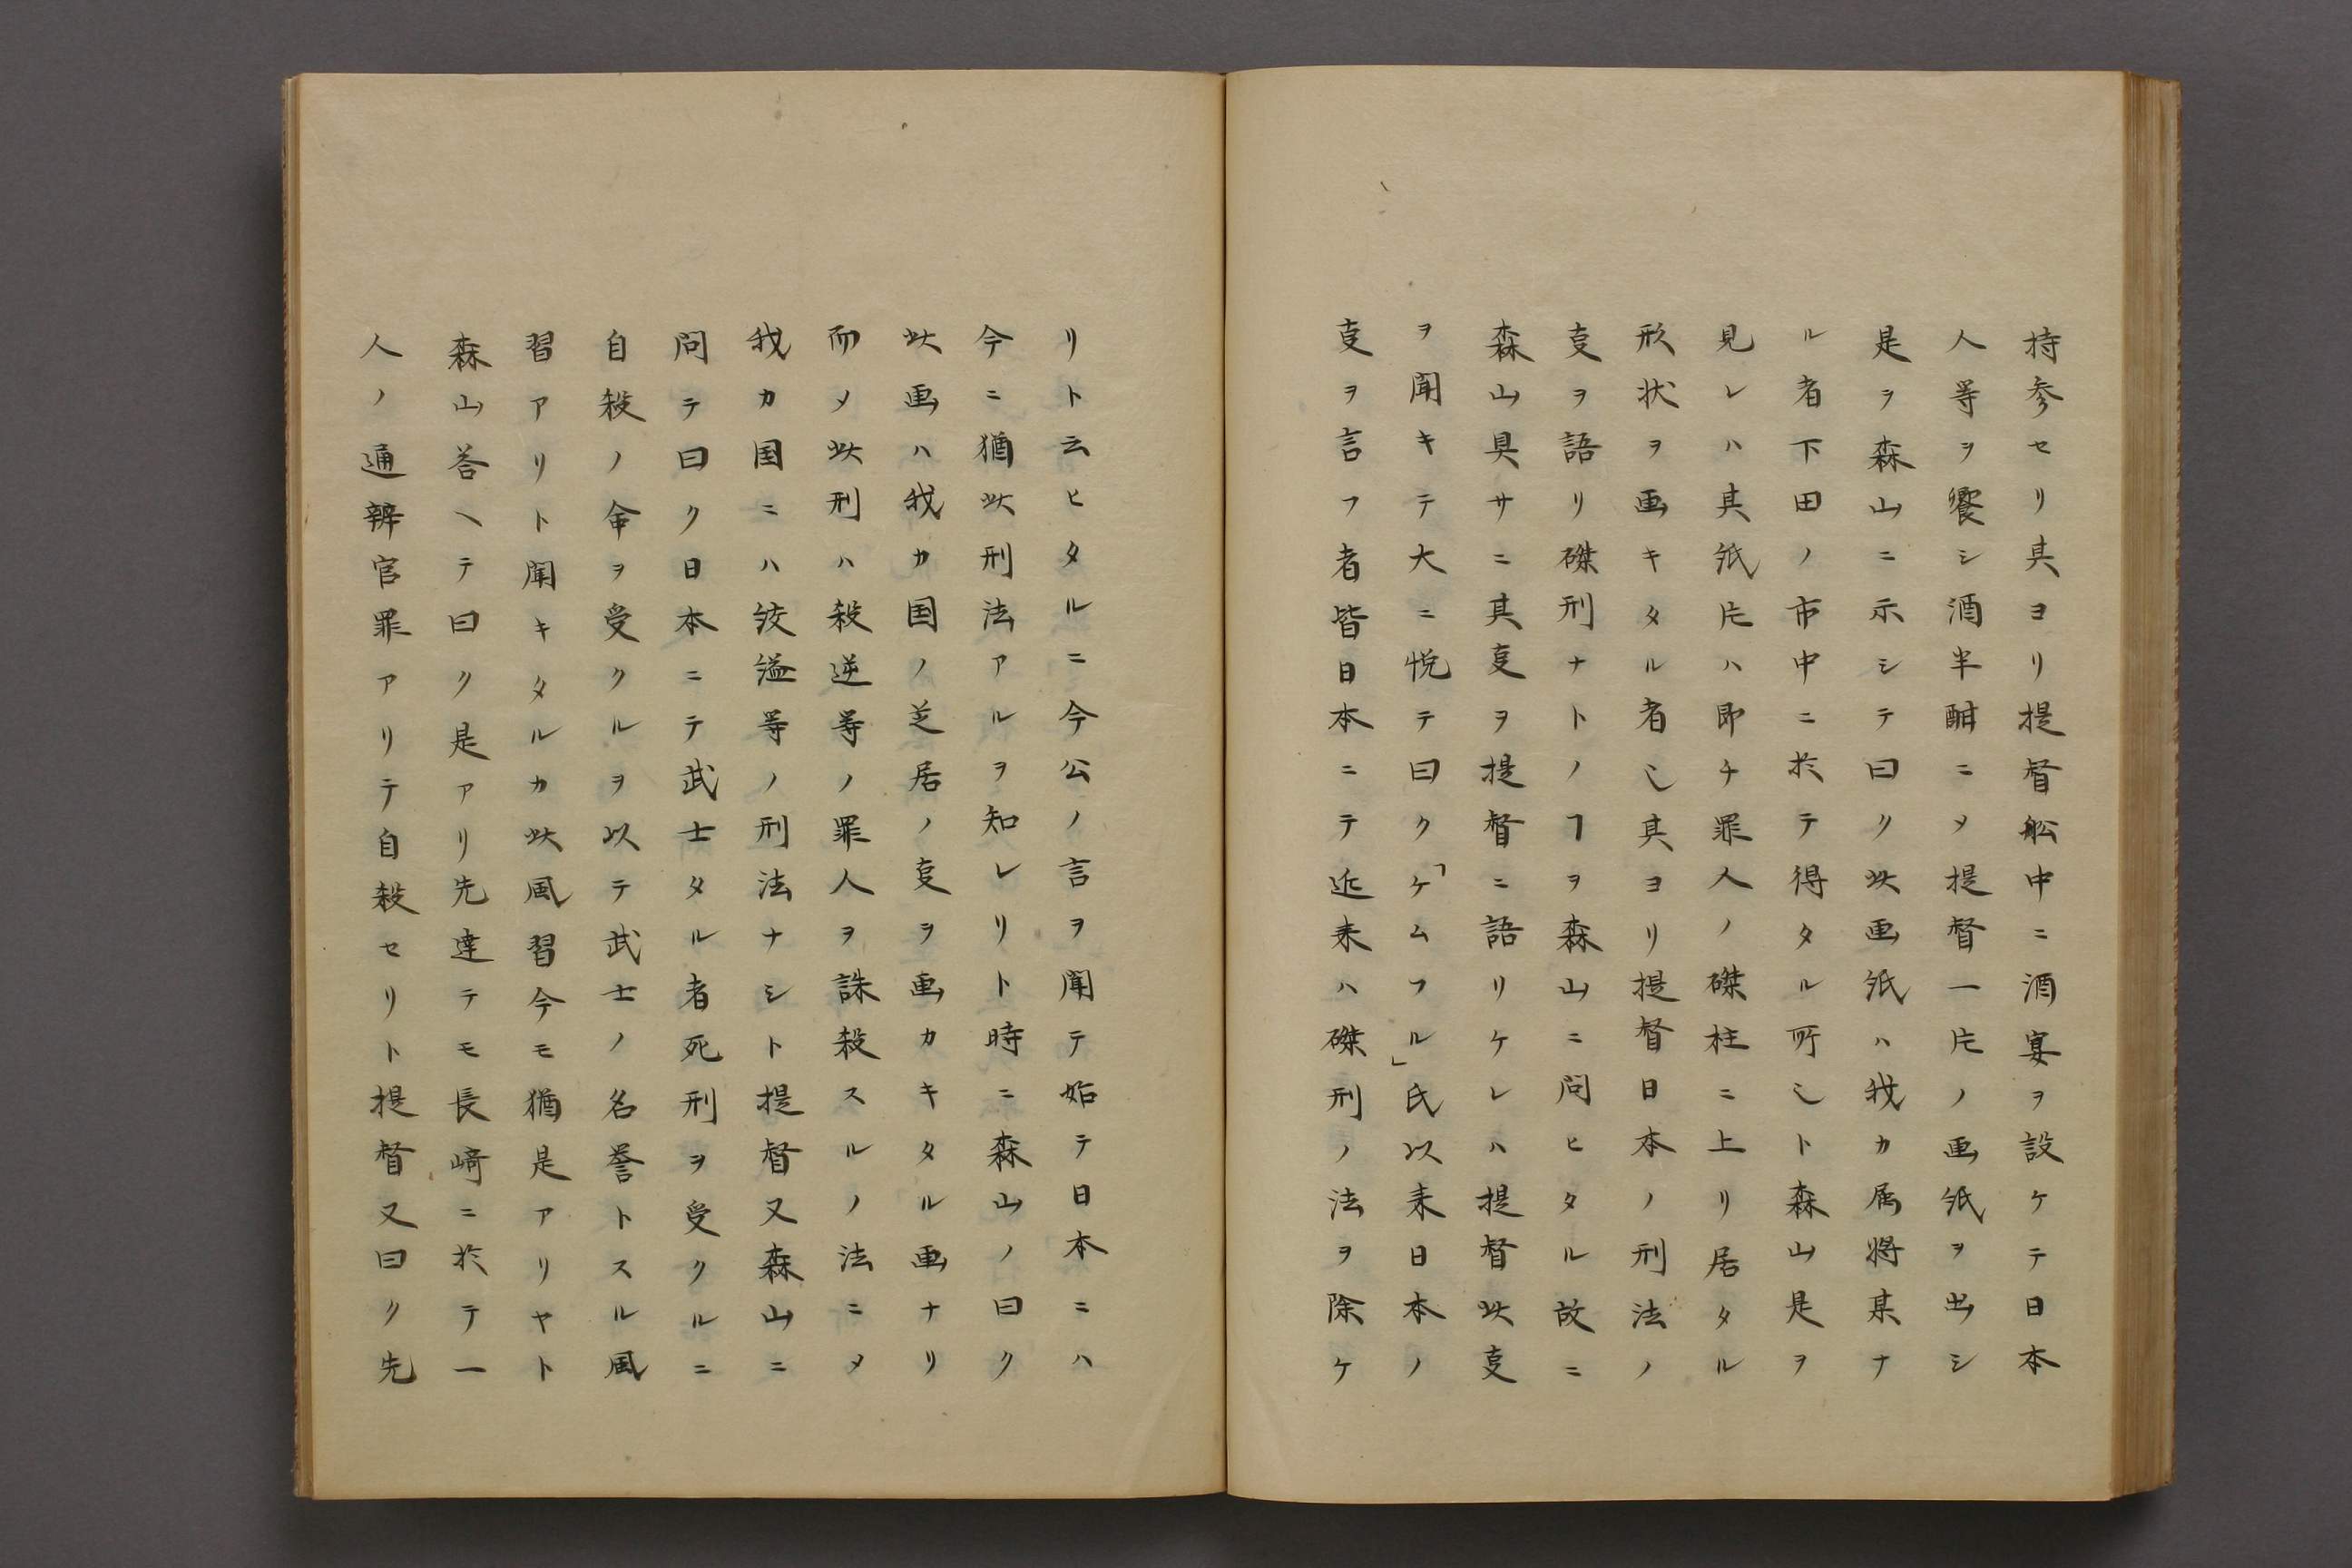 持参セリ其ヨリ提督舩中ニ酒宴ヲ設ケテ日本
人等ヲ饗シ酒半酣ニメ提督一片ノ画紙ヲ出シ
是ヲ森山ニ示シテ曰ク此画紙ハ我カ属将某ナ
ル者下田ノ市中ニ於テ得タル所乄ト森山是ヲ
見レハ其紙片ハ即チ罪人ノ磔柱ニ上リ居タル
形状ヲ画キタル者乄其ヨリ提督日本ノ刑法ノ
㕝ヲ語リ磔刑ナトノヿヲ森山ニ問ヒタル故ニ
森山具サニ其㕝ヲ提督ニ語リケレハ提督此㕝
ヲ聞キテ大ニ悦テ曰ク「ケムフル」氏以来日本ノ
㕝ヲ言フ者皆日本ニテ近来ハ磔刑ノ法ヲ除ケ
リト云ヒタルニ今公ノ言ヲ聞テ始テ日本ニハ
今ニ猶此刑法アルヲ知レリト時ニ森山ノ曰ク
此画ハ我カ国ノ芝居ノ㕝ヲ画カキタル画ナリ
而メ此刑ハ殺逆等ノ罪人ヲ誅殺スルノ法ニメ
我カ国ニハ絞縊等ノ刑法ナシト提督又森山ニ
問テ曰ク日本ニテ武士タル者死刑ヲ受クルニ
自殺ノ命ヲ受クルヲ以テ武士ノ名誉トスル風
習アリト聞キタルカ此風習今モ猶是アリヤト
森山答ヘテ曰ク是アリ先達テモ長崎ニ於テ一
人ノ通辨官罪アリテ自殺セリト提督又曰ク先